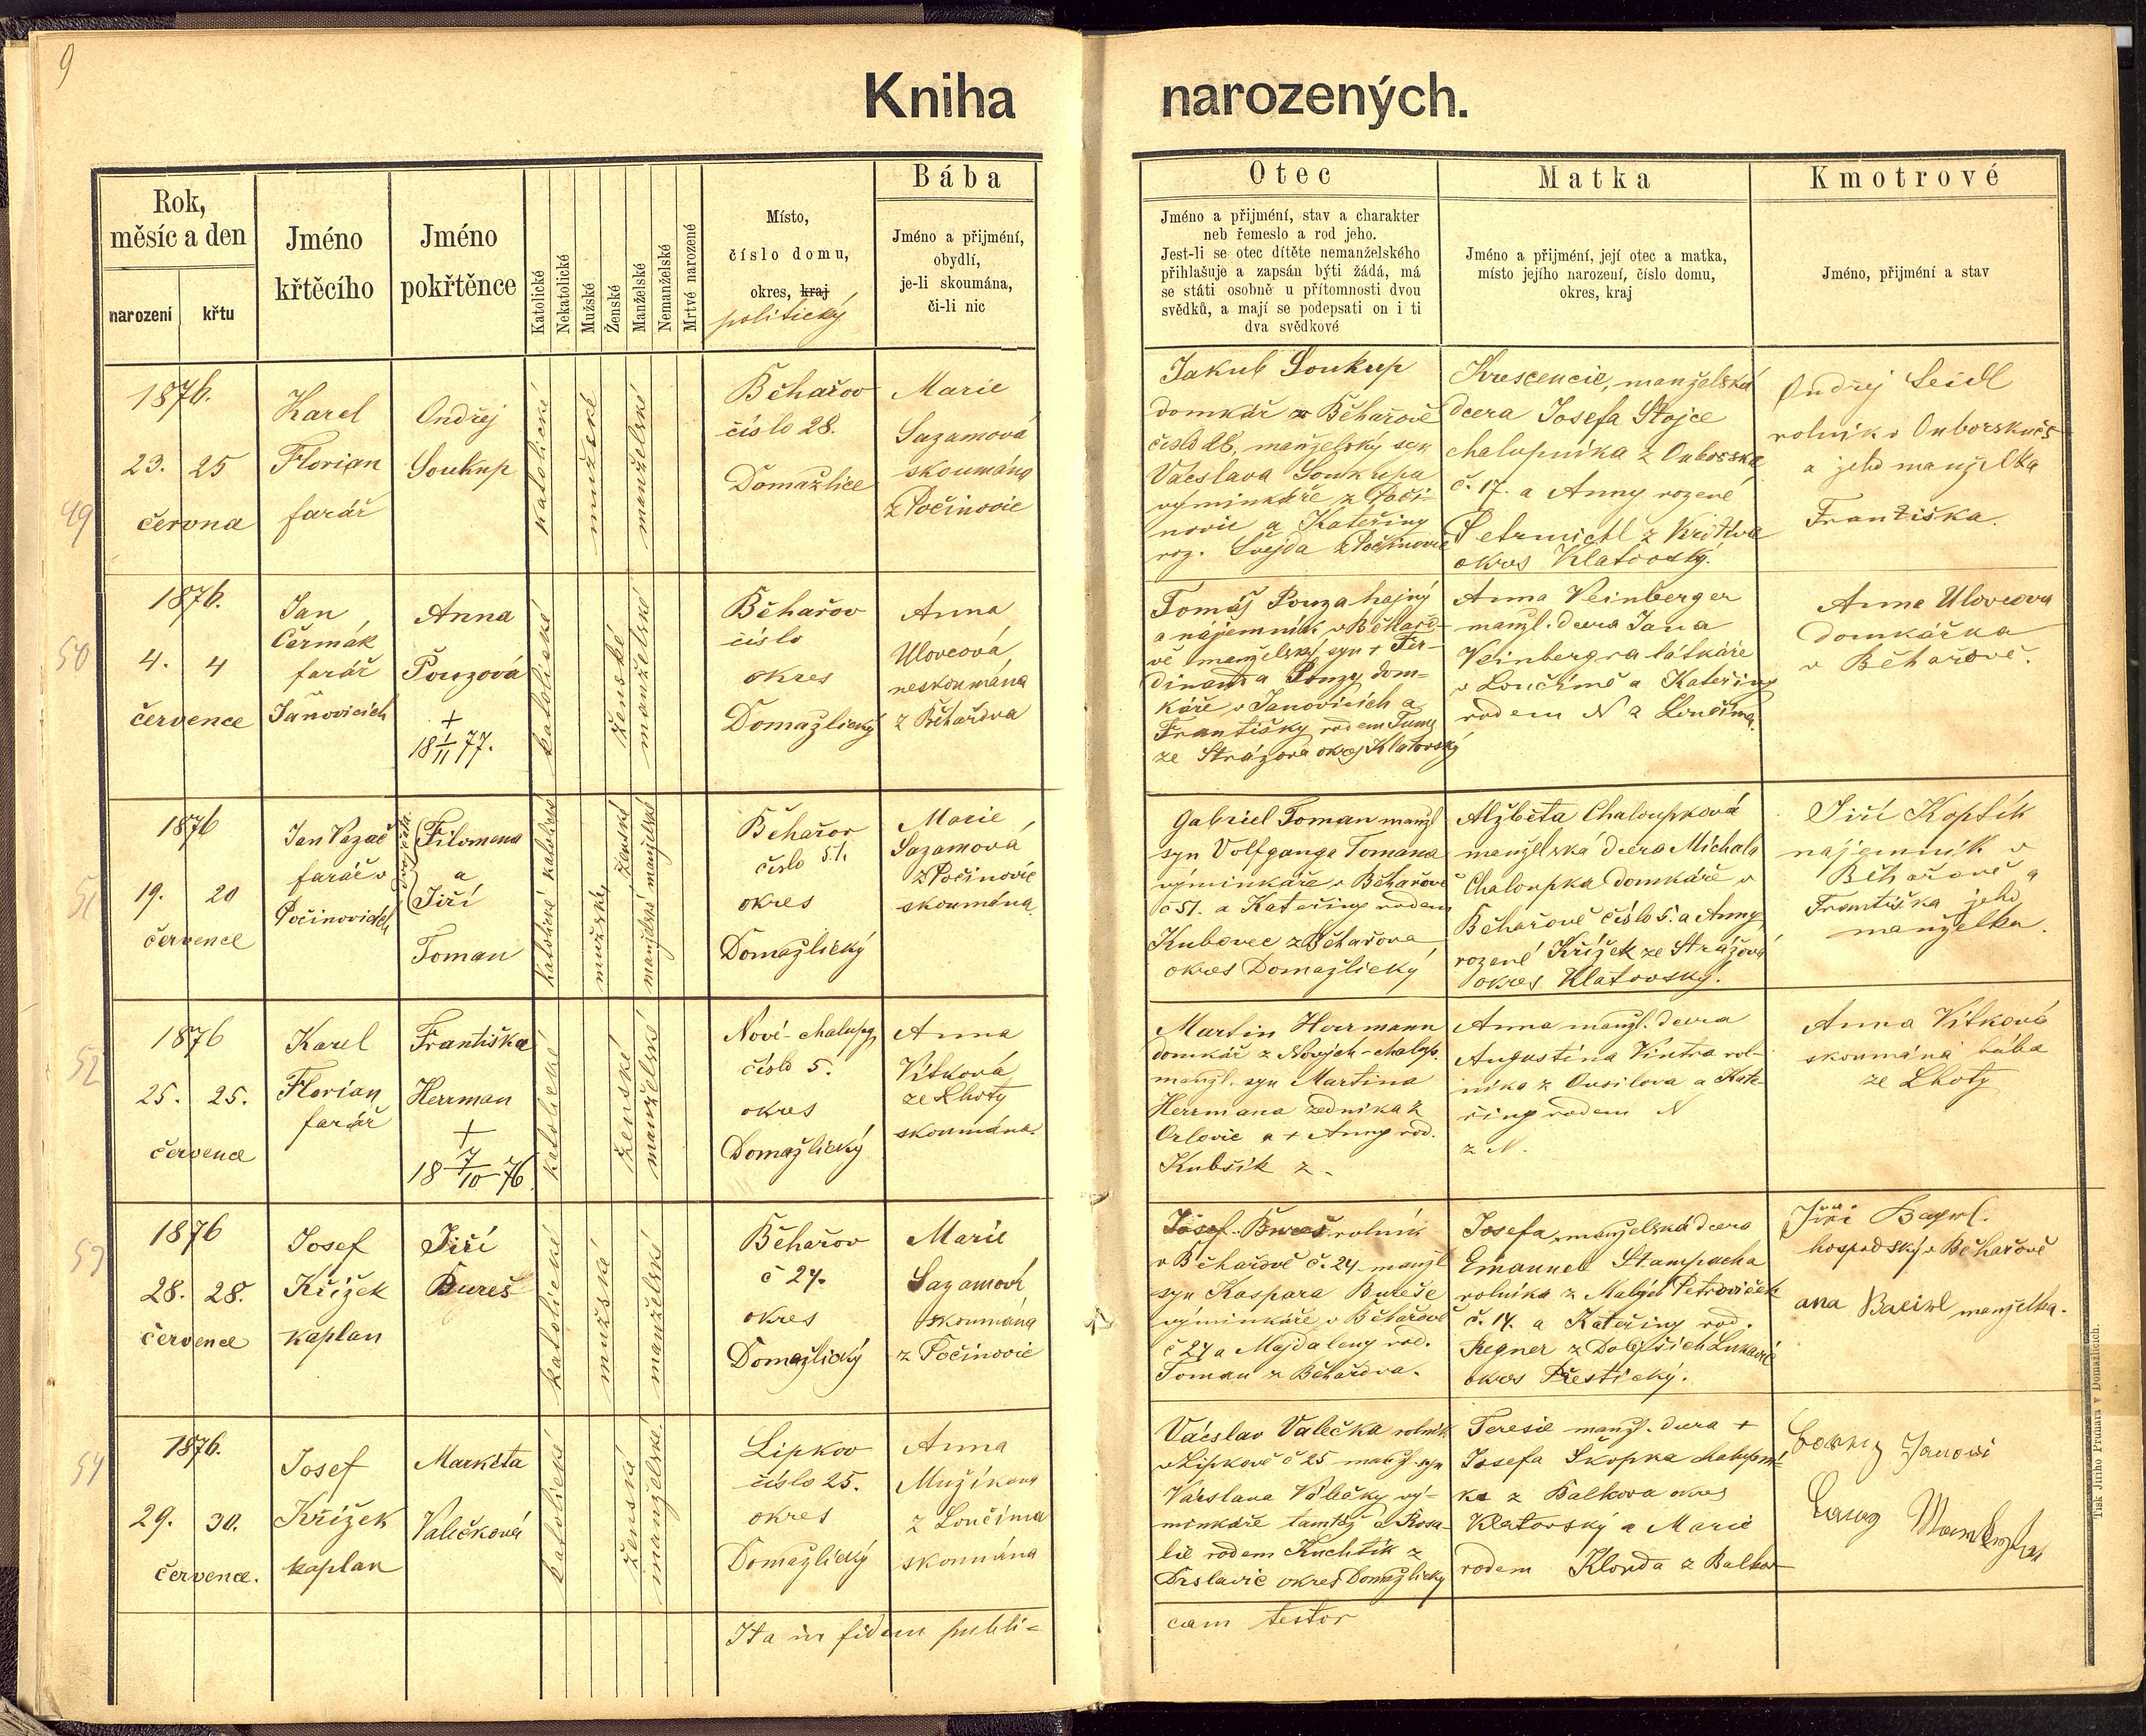 9
Kniha narozených.
Rok,
měsíc a den
narození
křtu
Jméno
křtěcího
Jméno
pokřtěnce
Katolické
Nekatolické
Mužské
Ženské
Manželské
Nemanželské
Mrtvé narozené
Místo,
číslo domu,
okres, kraj
politický
Bába
Jméno a přijméní,
obydlí,
je-li skoumána,
či-li nic
Otec
Jméno a přijméní, stav a charakter
neb řemeslo a rod jeho.
Jest-li se otec dítěte nemanželského
přihlašuje a zapsán býti žádá, má
se státi osobně u přítomnosti dvou
svědků, a mají se podepsati on i ti
dva svědkové
Matka
Jméno a přijmení, její otec a matka,
místo jejího narození, číslo domu,
okres, kraj
Kmotrové
Jméno, přijmení a stav
49
1876.
23. 25
června
Karel
Florian
farář
Ondřej
Soukup
katolické
mužské
manželské
Běhařov
číslo 28.
Domažlice
Marie
Sazamová
skoumána
z Počinovic
Jakub Soukup
domkář z Běhařově
číslo 28, manželský syn
Václava Soukupa
výminkáře z Poči-
novic a Kateřiny
roz. Švejda z Počinovic
Krescencie, manželská
dcera Josefa Stojce
chalupníka z Onborska
č. 17. a Anny rozené
Petrmichl z
okres Klatovský.
Ondřej Seidl
rolník v Onborsku
a jeho manželka
Františka.
50
1876.
4. 4
července
Jan
Čermák
farář
Janovicích
Anna
Pouzová
+
18 1/11 77.
katolické
ženské
manželské
Běhařov
číslo
okres
Domažlický
Anna
Ulovcová
neskoumána
z Běhařova
Tomáš Pouza hajný
a nájemník v Běhařo-
vě manželský syn + Fer-
dinanda Pouzy dom-
káře v Janovicích a
Františky rodem Tuma
ze Strážova okres Klatovský
Anna Veinberger
manžl. dcera Jana
Veinbergra látkáře
v Loučímě a Kateřiny
rodem N a Loučíma.
Anna Ulovcova
domkářka
v Běhařově.
51
1876
19. 20
července
Jan Vazač
farář v
Počinovicích
dvojčata
Filomena
a
Jiří
Toman
katolické katolické
mužský
ženský
manželské manželské
Běhařov
číslo 51.
okres
Domažlický
Marie
Sazamová
z Počinovic
skoumána.
Gabriel Toman manžl
syn Volfganga Tomana
výminkáře v Běhařově
č 51. a Kateřiny rodem
Kubovec z Běhařova
okres Domažlický
Alžběta Chaloupková
manželská dcera Michala
Chaloupka domkáře v
Běhařově číslo 5. a Anny,
rozené Křížek ze Strážova
okres Klatovský.
Jiří Koptík
nájemník v
Běhařově a
Františka jeho
manželka.
52
1876
25. 25.
července
Karel
Florian
farář
Františka
Herrman
+
18 7/10 76.
katolické
ženské
manželské
Nové-chalupy
číslo 5.
okres
Domažlický
Anna
Vítková
ze Lhoty
skoumána.
Martin Herrmann
domkář z Nových-chalup.
manžl. syn Martina
Herrmana zedníka z
Orlovic a + Anny rod.
Kubsik z -
Anna manžl. dcera
Augustina Vintra rol-
níka z Onsilova a Kate-
řiny rodem N
z N.
Anna Vítková
skoumána bába
ze Lhoty
53
1876
28. 28.
července
Josef
Křížek
kaplan
Jiří
Bureš
katolické
mužské
manželské
Běhařov
č 27.
okres
Domažlický
Marie
Sazamová,
skoumána
z Počinovic
Josef Bureš rolník
v Běhařově č. 27. manžl
syn Kaspara Bureše
výminkáře v Běhařově
č 27 a Majdaleny rod.
Toman z Běhařova.
Josefa, manželská dcera
Emanuel Stampacha
rolníka z Malých Petroviček
č. 14. a Kateřiny rod.
Regner z Dolejších Lukavic
okres Přestický.
Jiří Bayrl.
hospodský v Běhařově
ana manželka.
54
1876.
29. 30.
července.
Josef
Křížek
kaplan
Markéta
Valečková
katolické
ženské
manželské
Lipkov
číslo 25.
okres
Domažlický
Anna
Mužíkova
z Loučíma
skoumána
Václav Valečka rolník
v Lipkově č 25 manžl. syn
Václava Valečky vý-
minkáře tamtéž a Rosa-
lie rodem Kuchtík z
Drslavic okres Domažlický
Teresie manžl. dcera +
Josefa Škopka chalupní-
ka z Balkova okres
Klatovský a Marie
rodem Klonda z Balkov
Ita in fidem publi-
cam testor
Tisk Jiřího Prunara v Domažlicích.